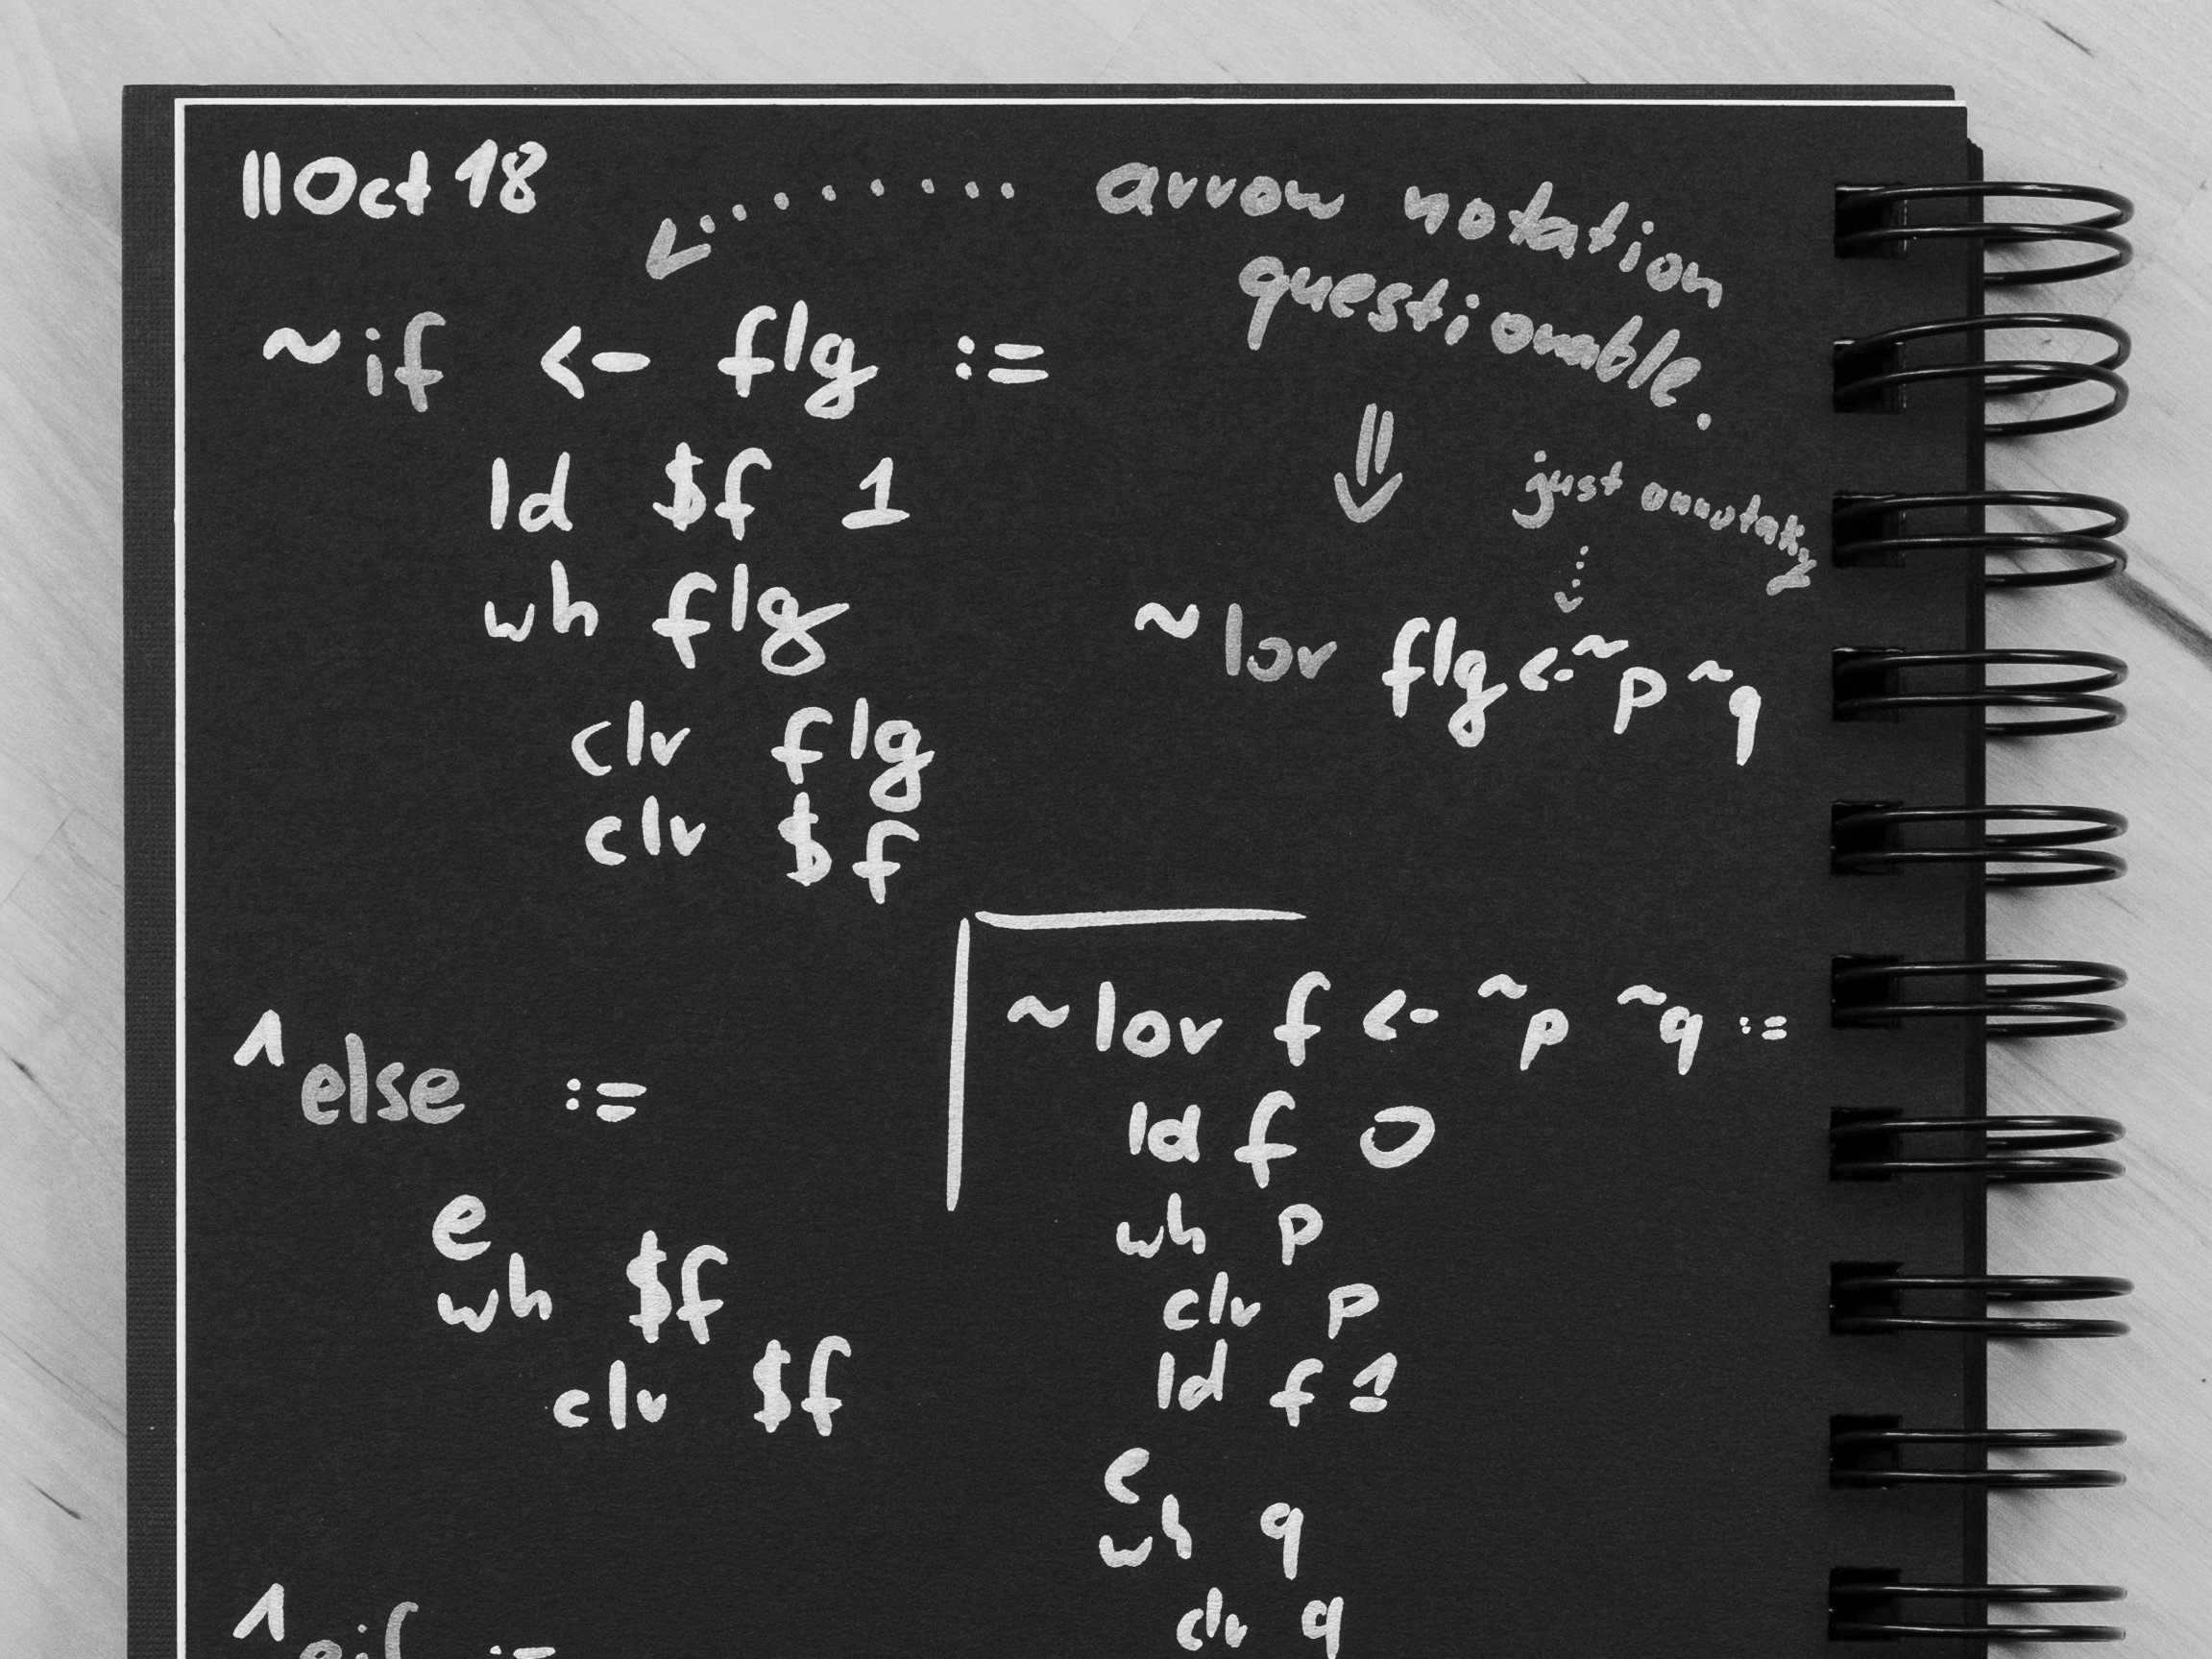 11 Oct 18
arrow notation
questionable.
~if <- flg :=
ld $f 1
wh flg
clr flg
clr $f
just
~lor flg <- ~p ~q
^else :=
e
wh $f
clr $f
~lor f <- ~p ~q :=
ld f 0
wh p
clr p
ld f 1
e
wh q
clr q
^eif :=